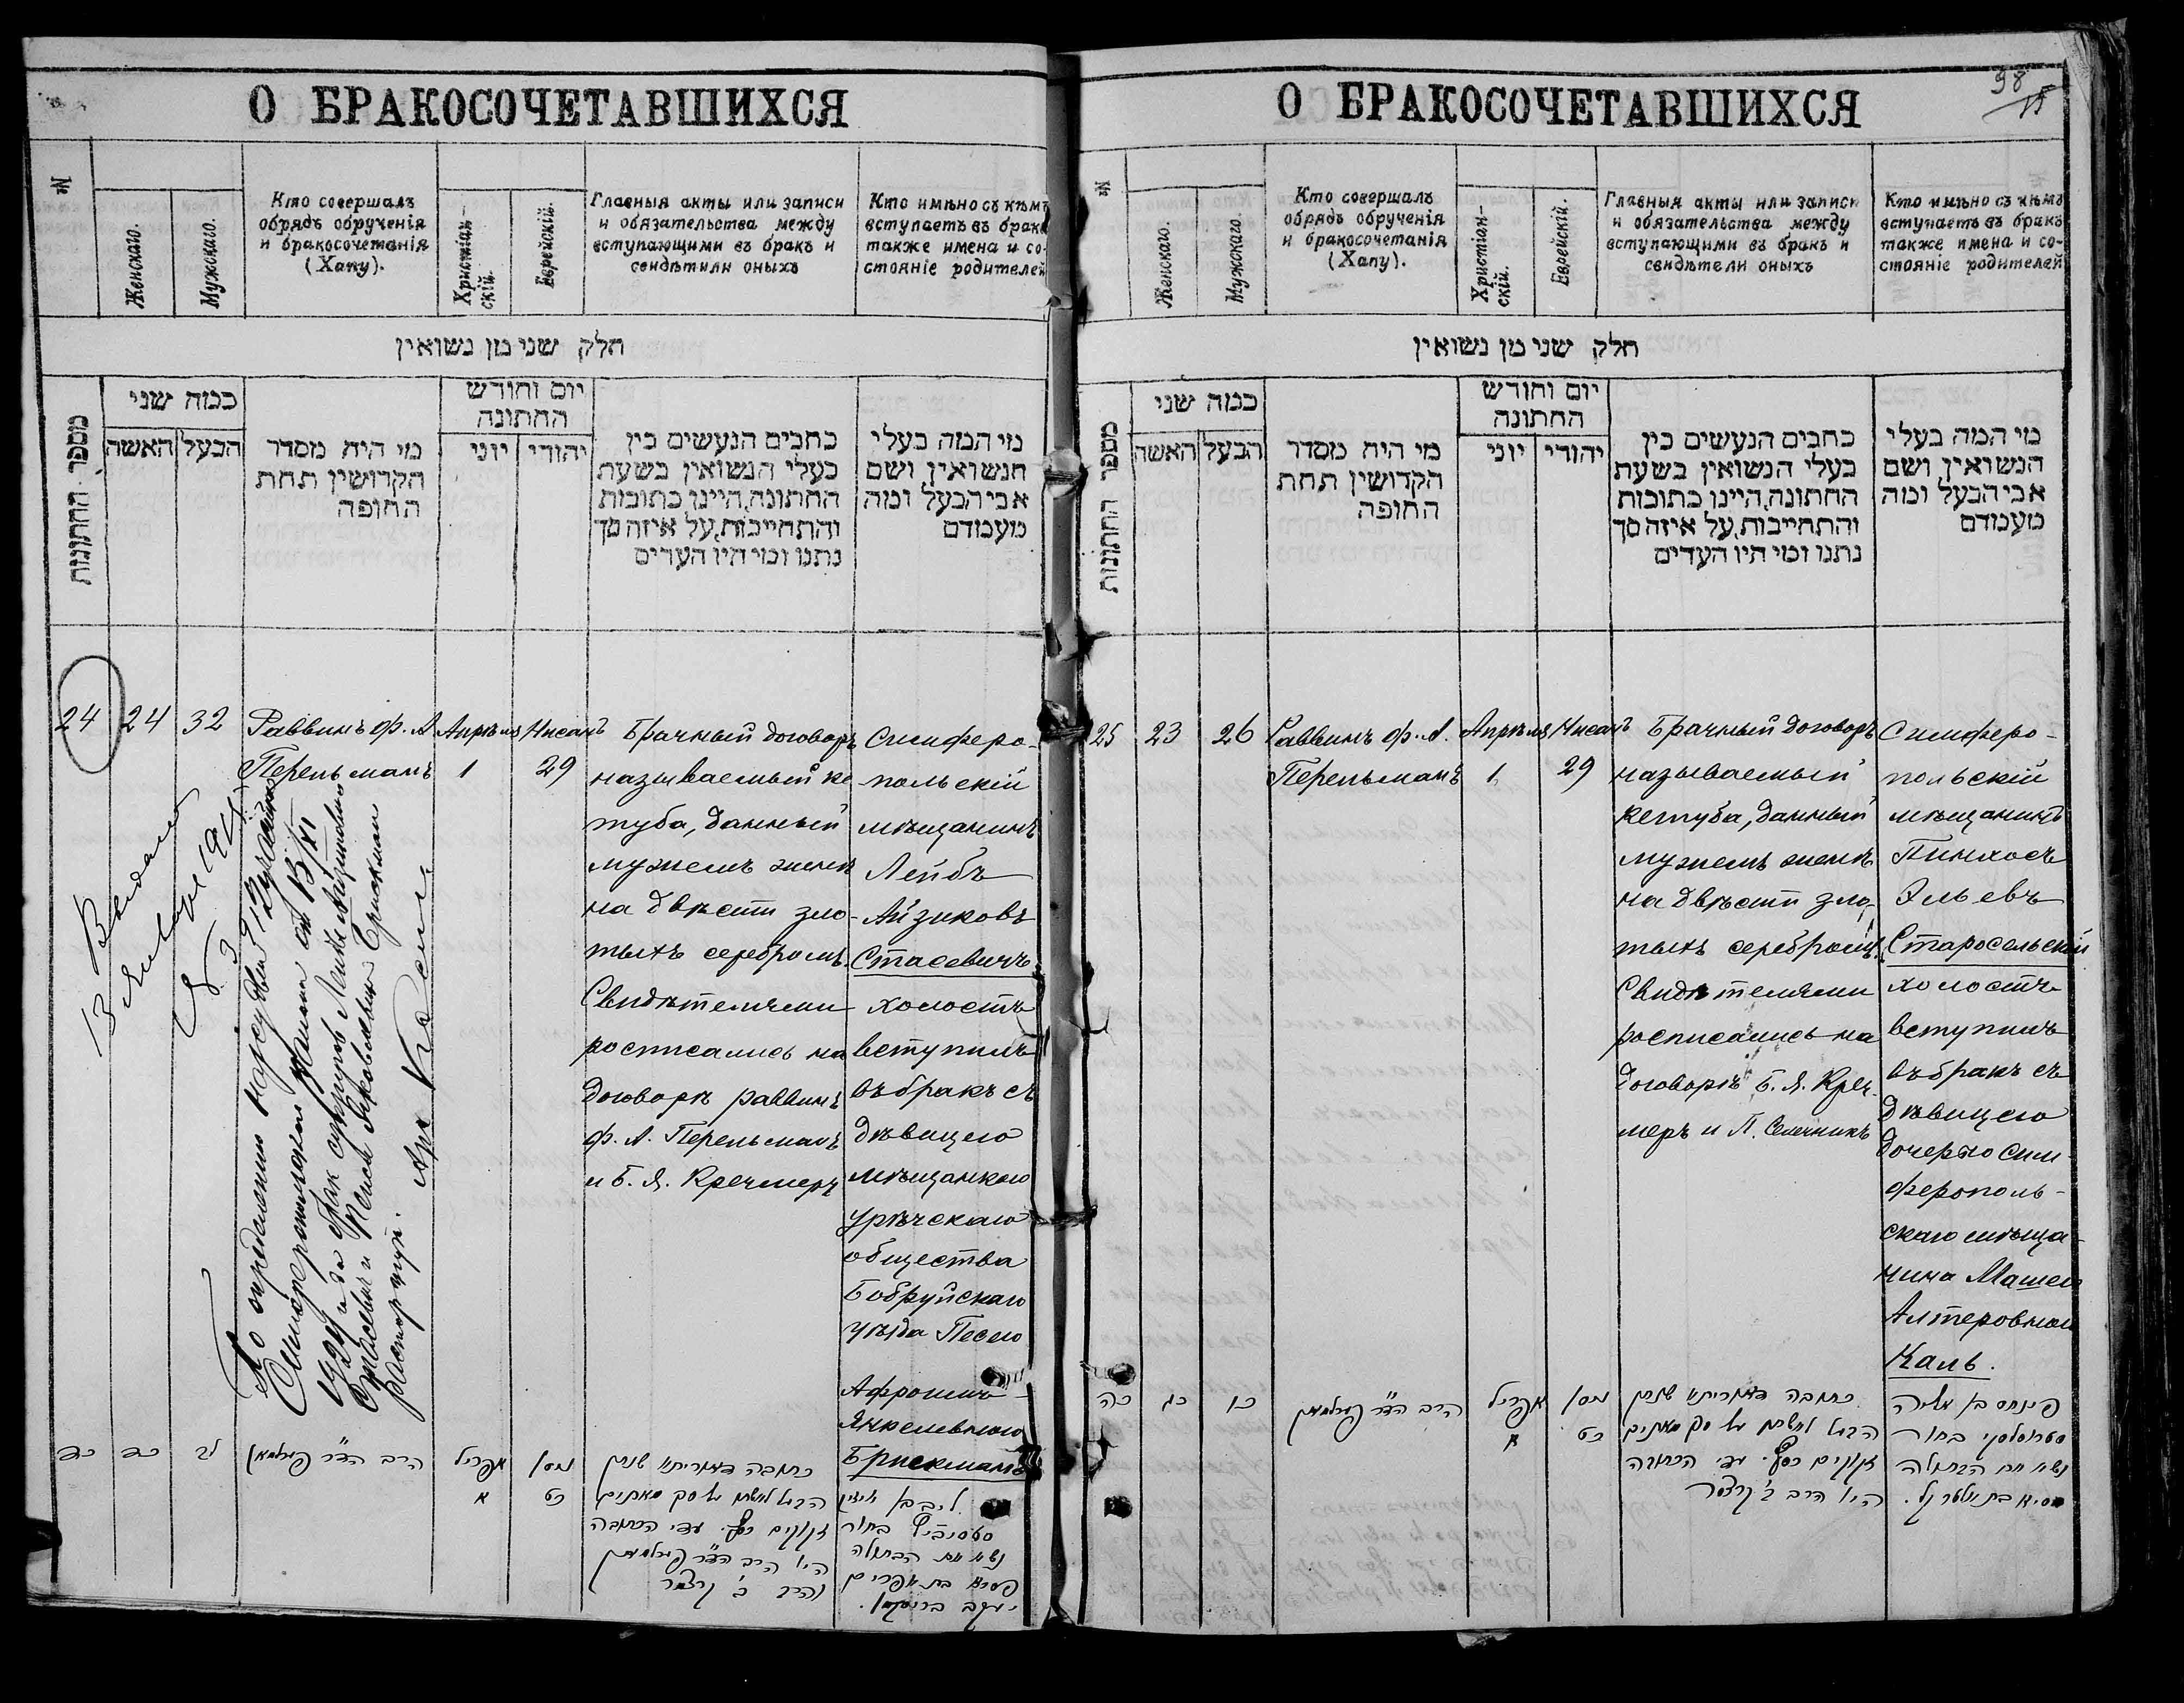 О БРАКОСОЧЕТАВШИХСЯ
№
Женскаго.
Мужскаго.
Кто совершалъ
обрядъ обрученія
и бракосочетанія
(Хапу).
Христіан-
скій.
Еврейскій.
Главныя акты или записи
и обязательства между
вступающими въ бракъ и
свидѣтили оныхъ
Кто имѣно съ кѣмъ
вступаетъ въ бракъ
также имена и со-
стояніе родителей
חלק שני מן נשואין
מספר החתונות
כמה שני
האשה
הבעל
מי היה מסדר
הקדושין תחת
החופה
יום וחודש
החתונה
יוני
יהודי
כתבים הנעשים בין
בעלי הנשואין בשעת
החתונה, היינו כתובות
והתחייבות, על איזה סך
נתנו ומי היו העדים
מי המה בעלי
הנשואין ושם
אבי הבעל ומה
מעמדם
24
24
32
Раввинъ Ф. А.
Перельманъ
Апрѣля
1
Нисанъ
29
Брачный договоръ
называемый ке
туба, данный
мужемъ женѣ
на двѣсти зло-
тыхъ серебромъ.
Свидѣтелями
росписались на
договорѣ раввинъ
Ф. А. Перельманъ
и Б. Я. Кречмеръ
Симферо-
польскій
мѣщанинъ
Лейбъ
Айзиковъ
Стасевичъ
холостъ
вступилъ
въ бракъ съ
дѣвицею
мѣщанкою
Урѣчскаго
общества
Бобруйскаго
уѣзда Песею
Афроимъ-
Янкелевною
Брискманъ
По определению нарсуда
1924 и да брак супругов Лейба Айзиковича
Стасевич и Песи Янкелевны Брискман
расторгнут.
כד
כד
לב
הרב הד"ר פערלמאן
אפריל
א
ניסן
כט
כתובה דאוריתא שנתן
הבעל לאשתו על סך מאתים
זקוקים כסף. עדי הכתובה
היו הרב הד"ר פערלמאן
והרב ב' קרצמר
ליב בן אייזיק
סטסיביץ בחור
נשא את הבתולה
פסיא בת אפרים
יעקב בריסקמן.
98
15
О БРАКОСОЧЕТАВШИХСЯ
№
Женскаго.
Мужскаго.
Кто совершалъ
обрядъ обрученія
и бракосочетанія
(Хапу).
Христіан-
скій.
Еврейскій.
Главныя акты или записи
и обязательства между
вступающими въ бракъ и
свидѣтели оныхъ
Кто имѣно съ кѣмъ
вступаетъ въ бракъ
также имена и со-
стояніе родителей
חלק שני מן נשואין
מספר החתונות
כמה שני
האשה
הבעל
מי היה מסדר
הקדושין תחת
החופה
יום וחודש
החתונה
יוני
יהודי
כתבים הנעשים בין
בעלי הנשואין בשעת
החתונה, היינו כתובות
והתחייבות, על איזה סך
נתנו ומי היו העדים
מי המה בעלי
הנשואין ושם
אבי הבעל ומה
מעמדם
25
23
26
Раввинъ Ф. А.
Перельманъ
Апрѣля
1
Нисанъ
29
Брачный договоръ
называемый
кетуба, данный
мужемъ женѣ
на двѣсти зло-
тыхъ серебромъ.
Свидѣтелями
росписались на
договорѣ Б. Я. Креч-
меръ и Л. Селечникъ
Симферо-
польскій
мѣщанинъ
Пинхосъ
Эльевъ
Старосельскій
холостъ
вступилъ
въ бракъ съ
дѣвицею
дочерью сим
ферополь-
скаго мѣща-
нина Машею
Алтеровною
Каль.
כה
כג
כו
הרב הד"ר פערלמאן
אפריל
א
ניסן
כט
כתובה דאוריתא שנתן
הבעל לאשתו על סך מאתים
זקוקים כסף. עדי הכתובה
היו הרב ב' קרצמר
פינחס בן אליה
סטרוסלסקי בחור
נשא את הבתולה
מסיא בת אלטר קל.